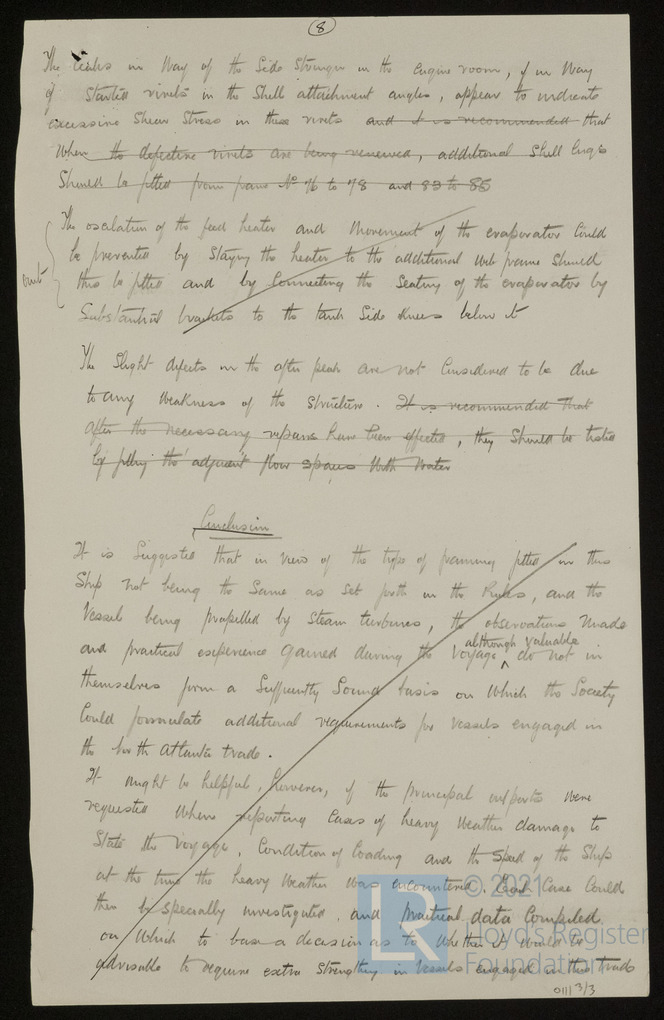 8
The leaks in way of the Side Stringer in the Engine room, & in way
of started rivets in the Shell attachment angles, appear to indicate
excessive Shear Stress in these rivets and it is recommended that
when the defective rivets are being renewed, additional Shell lugs
Should be fitted from frame No 76 to 78 and 83 to 85
The oscilation of the feed heater and Movement of the evaporator Could
be prevented by Staying the heater to the additional Web frame Should
this be fitted and by Connecting the Seating of the evaporator by
omit
Substantial brackets to the tank Side Knees below it
The Slight defects in the after peak are not Considered to be due
to any Weakness of the Structure. It is recommended that
after the necessary repairs have been effected, they Should be tested
by filling the adjacent floor spaces with Water
Conclusion
It is Suggested that in view of the type of framing fitted in this
Ship not being the Same as set forth in the Rules, and the
Vessel being propelled by Steam turbines, the observations Made
although valuable
and practical experience gained during the Voyage ^ do not in
themselves form a Sufficiently Sound basis on Which the Society
Could formulate additional requirements for Vessels engaged in
the North Atlantic trade.
It might be helpful, however, if the principal outports were
requested When reporting Cases of heavy Weather damage to
State the Voyage, Condition of loading and the Speed of the Ship
at the time the heavy Weather was encountered. Each Case Could
then be specially investigated, and practical data Compiled
on Which to base a decision as to Whether it Would be
advisable to require extra Strengthg in Vessels engaged in this trade
© 2021
LR
Lloyd's Register
Foundation
0111 3/3